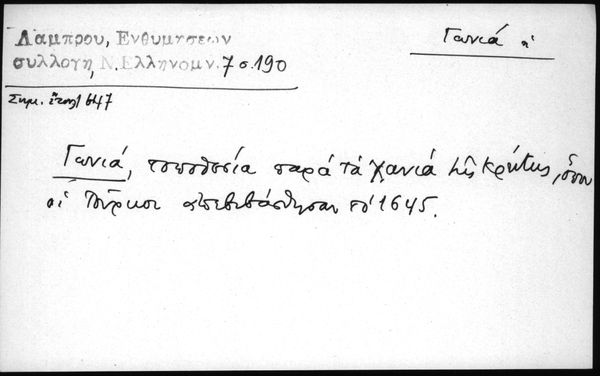 Λάμπρου, Ενθυμήσεων
συλλογή, Ν. Ελληνομν. 7 σ. 190
Γωνιά ἡ
Σημ. ἔτους 1647
Γωνιά, τοποθεσία παρά τά Χανιά τῆς Κρήτης, ὅπου
οἱ Τοῦρκοι ἀπεβιβάσθησαν τό 1645.